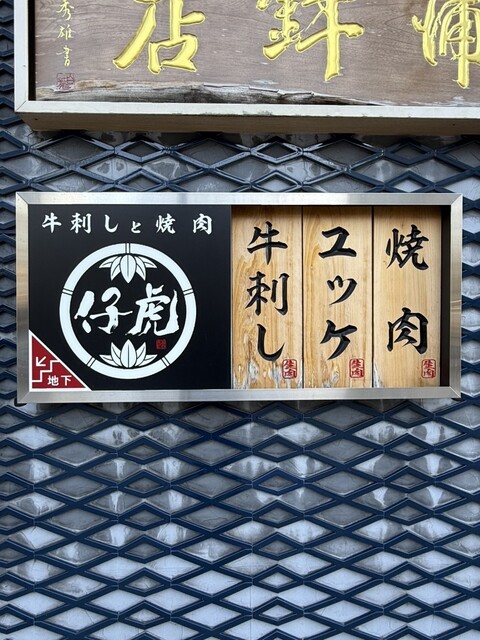 蒲鉾店
秀雄書
牛刺しと焼肉
仔虎
地下
焼肉
ユッケ
牛刺し